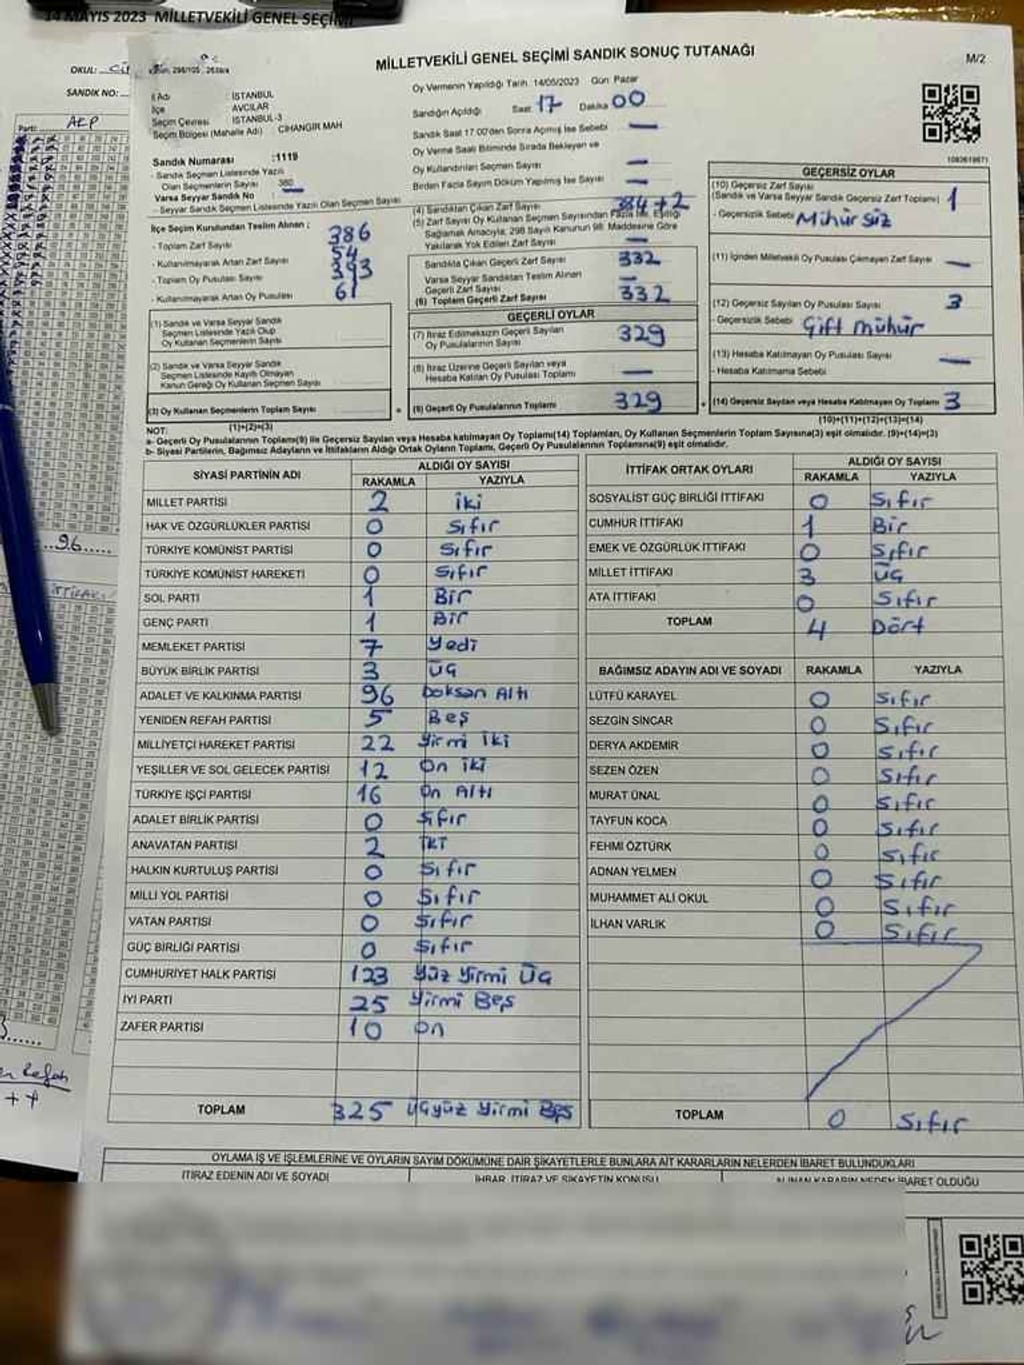 14 MAYIS 2023 MİLLETVEKİLİ GENEL SEÇİMİ
OKUL:
SANDIK NO:
Parti: AKP
96
MİLLETVEKİLİ GENEL SEÇİMİ SANDIK SONUÇ TUTANAĞI
M/2
İl Adı : İSTANBUL
İlçe AVCILAR
Seçim Çevresi : İSTANBUL-3
Seçim Bölgesi (Mahalle Adı) : CİHANGİR MAH
Sandık Numarası :1119
- Sandık Seçmen Listesinde Yazılı
Olan Seçmenlerin Sayısı : 380
Varsa Seyyar Sandık No
- Seyyar Sandık Seçmen Listesinde Yazılı Olan Seçmen Sayısı
Oy Vermenin Yapıldığı Tarih :14/05/2023 Gün Pazar
Sandığın Açıldığı Saat 17 Dakika 00
Sandık Saat 17.00'den Sonra Açılmış İse Sebebi —
Oy Verme Saati Bitiminde Sırada Bekleyen ve
Oy Kullandırılan Seçmen Sayısı —
Birden Fazla Sayım Döküm Yapılmış İse Sayısı —
İlçe Seçim Kurulundan Teslim Alınan ;
- Toplam Zarf Sayısı 386
- Kullanılmayarak Artan Zarf Sayısı 54
- Toplam Oy Pusulası Sayısı 393
- Kullanılmayarak Artan Oy Pusulası 61
(1) Sandık ve Varsa Seyyar Sandık
Seçmen Listesinde Yazılı Olup
Oy Kullanan Seçmenlerin Sayısı
(2) Sandık ve Varsa Seyyar Sandık
Seçmen Listesinde Kayıtlı Olmayan
Kanun Gereği Oy Kullanan Seçmen Sayısı
(3) Oy Kullanan Seçmenlerin Toplam Sayısı
(1)+(2)=(3)
(4) Sandıktan Çıkan Zarf Sayısı
(5) Zarf Sayısı Oy Kullanan Seçmen Sayısından Fazla İse, Eşitliği
Sağlamak Amacıyla; 298 Sayılı Kanunun 98. Maddesine Göre
Yakılarak Yok Edilen Zarf Sayısı —
Sandıkta Çıkan Geçerli Zarf Sayısı 332
Varsa Seyyar Sandıktan Teslim Alınan
Geçerli Zarf Sayısı —
(6) Toplam Geçerli Zarf Sayısı 332
GEÇERLİ OYLAR
(7) İtiraz Edilmeksizin Geçerli Sayılan
Oy Pusulalarının Sayısı 329
(8) İtiraz Üzerine Geçerli Sayılan veya
Hesaba Katılan Oy Pusulası Toplamı —
(9) Geçerli Oy Pusulalarının Toplamı 329
GEÇERSİZ OYLAR
(10) Geçersiz Zarf Sayısı
(Sandık ve Varsa Seyyar Sandık Geçersiz Zarf Toplamı) 1
- Geçersizlik Sebebi Mühür Siz
(11) İçinden Milletvekili Oy Pusulası Çıkmayan Zarf Sayısı —
(12) Geçersiz Sayılan Oy Pusulası Sayısı 3
- Geçersizlik Sebebi Çift mühür
(13) Hesaba Katılmayan Oy Pusulası Sayısı —
- Hesaba Katılmama Sebebi
(14) Geçersiz Sayılan veya Hesaba Katılmayan Oy Toplamı 3
(10)+(11)+(12)+(13)=(14)
NOT:
a- Geçerli Oy Pusulalarının Toplamı(9) ile Geçersiz Sayılan veya Hesaba katılmayan Oy Toplamı(14) Toplamları, Oy Kullanan Seçmenlerin Toplam Sayısına(3) eşit olmalıdır. (9)+(14)=(3)
b- Siyasi Partilerin, Bağımsız Adayların ve İttifakların Aldığı Ortak Oyların Toplamı, Geçerli Oy Pusulalarının Toplamına(9) eşit olmalıdır.
SİYASİ PARTİNİN ADI ALDIĞI OY SAYISI
RAKAMLA YAZIYLA
MİLLET PARTİSİ 2 iki
HAK VE ÖZGÜRLÜKLER PARTİSİ 0 Sıfır
TÜRKİYE KOMÜNİST PARTİSİ 0 Sıfır
TÜRKİYE KOMÜNİST HAREKETİ 0 Sıfır
SOL PARTİ 1 Bir
GENÇ PARTİ 1 Bir
MEMLEKET PARTİSİ 7 Yedi
BÜYÜK BİRLİK PARTİSİ 3 Üç
ADALET VE KALKINMA PARTİSİ 96 Doksan Altı
YENİDEN REFAH PARTİSİ 5 Beş
MİLLİYETÇİ HAREKET PARTİSİ 22 Yirmi İki
YEŞİLLER VE SOL GELECEK PARTİSİ 12 On iki
TÜRKİYE İŞÇİ PARTİSİ 16 On Altı
ADALET BİRLİK PARTİSİ 0 Sıfır
ANAVATAN PARTİSİ 2 İki
HALKIN KURTULUŞ PARTİSİ 0 Sıfır
MİLLİ YOL PARTİSİ 0 Sıfır
VATAN PARTİSİ 0 Sıfır
GÜÇ BİRLİĞİ PARTİSİ 0 Sıfır
CUMHURİYET HALK PARTİSİ 123 Yüz Yirmi Üç
İYİ PARTİ 25 Yirmi Beş
ZAFER PARTİSİ 10 On
TOPLAM 325 Üçyüz Yirmi Beş
İTTİFAK ORTAK OYLARI ALDIĞI OY SAYISI
RAKAMLA YAZIYLA
SOSYALİST GÜÇ BİRLİĞİ İTTİFAKI 0 Sıfır
CUMHUR İTTİFAKI 1 Bir
EMEK VE ÖZGÜRLÜK İTTİFAKI 0 Sıfır
MİLLET İTTİFAKI 3 Üç
ATA İTTİFAKI 0 Sıfır
TOPLAM 4 Dört
BAĞIMSIZ ADAYIN ADI VE SOYADI RAKAMLA YAZIYLA
LÜTFÜ KARAYEL 0 Sıfır
SEZGİN SİNCAR 0 Sıfır
DERYA AKDEMİR 0 Sıfır
SEZEN ÖZEN 0 Sıfır
MURAT ÜNAL 0 Sıfır
TAYFUN KOCA 0 Sıfır
FEHMİ ÖZTÜRK 0 Sıfır
ADNAN YELMEN 0 Sıfır
MUHAMMET ALİ OKUL 0 Sıfır
İLHAN VARLIK 0 Sıfır
TOPLAM 0 Sıfır
OYLAMA İŞ VE İŞLEMLERİNE VE OYLARIN SAYIM DÖKÜMÜNE DAİR ŞİKAYETLERLE BUNLARA AİT KARARLARIN NELERDEN İBARET BULUNDUKLARI
İTİRAZ EDENİN ADI VE SOYADI İHBAR, İTİRAZ VE ŞİKAYETİN KONUSU ALINAN KARARIN NEDEN İBARET OLDUĞU